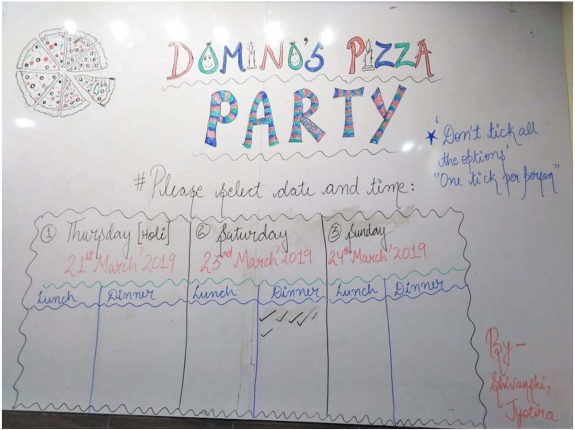 DOMINO'S PIZZA
PARTY
★ 'Don't tick all
the options'
"One tick per person"
#Please select date and time:
① Thursday [Holi]
21st March'2019
② Saturday
23nd March'2019
③ Sunday
24th March'2019
Lunch Dinner Lunch Dinner Lunch Dinner
By -
Shivangshi,
Jyotira